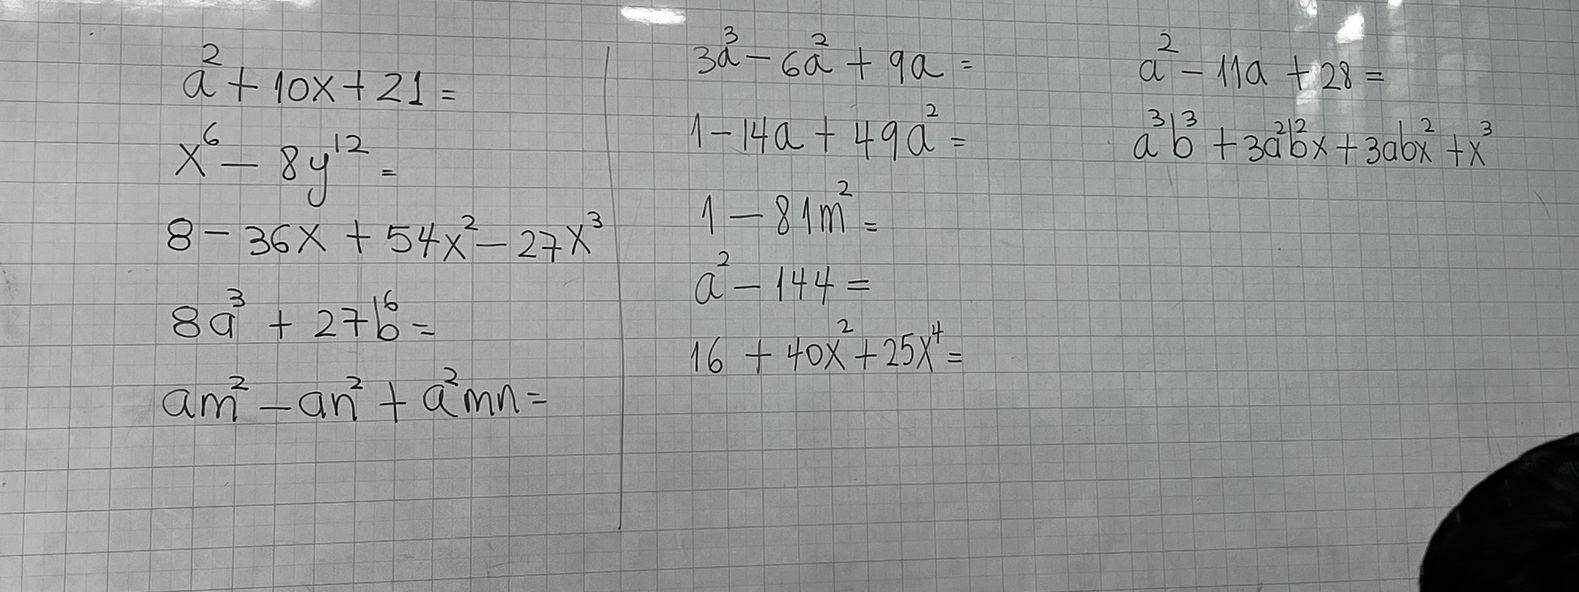 a² + 10x + 21 =
x⁶ - 8y¹² =
8 - 36x + 54x² - 27x³
8a³ + 27b⁶ =
am² - an² + a²mn =
3a³ - 6a² + 9a =
1 - 14a + 49a² =
1 - 81m² =
a² - 144 =
16 + 40x² + 25x⁴ =
a² - 11a + 28 =
a³b³ + 3a²b²x + 3abx² + x³